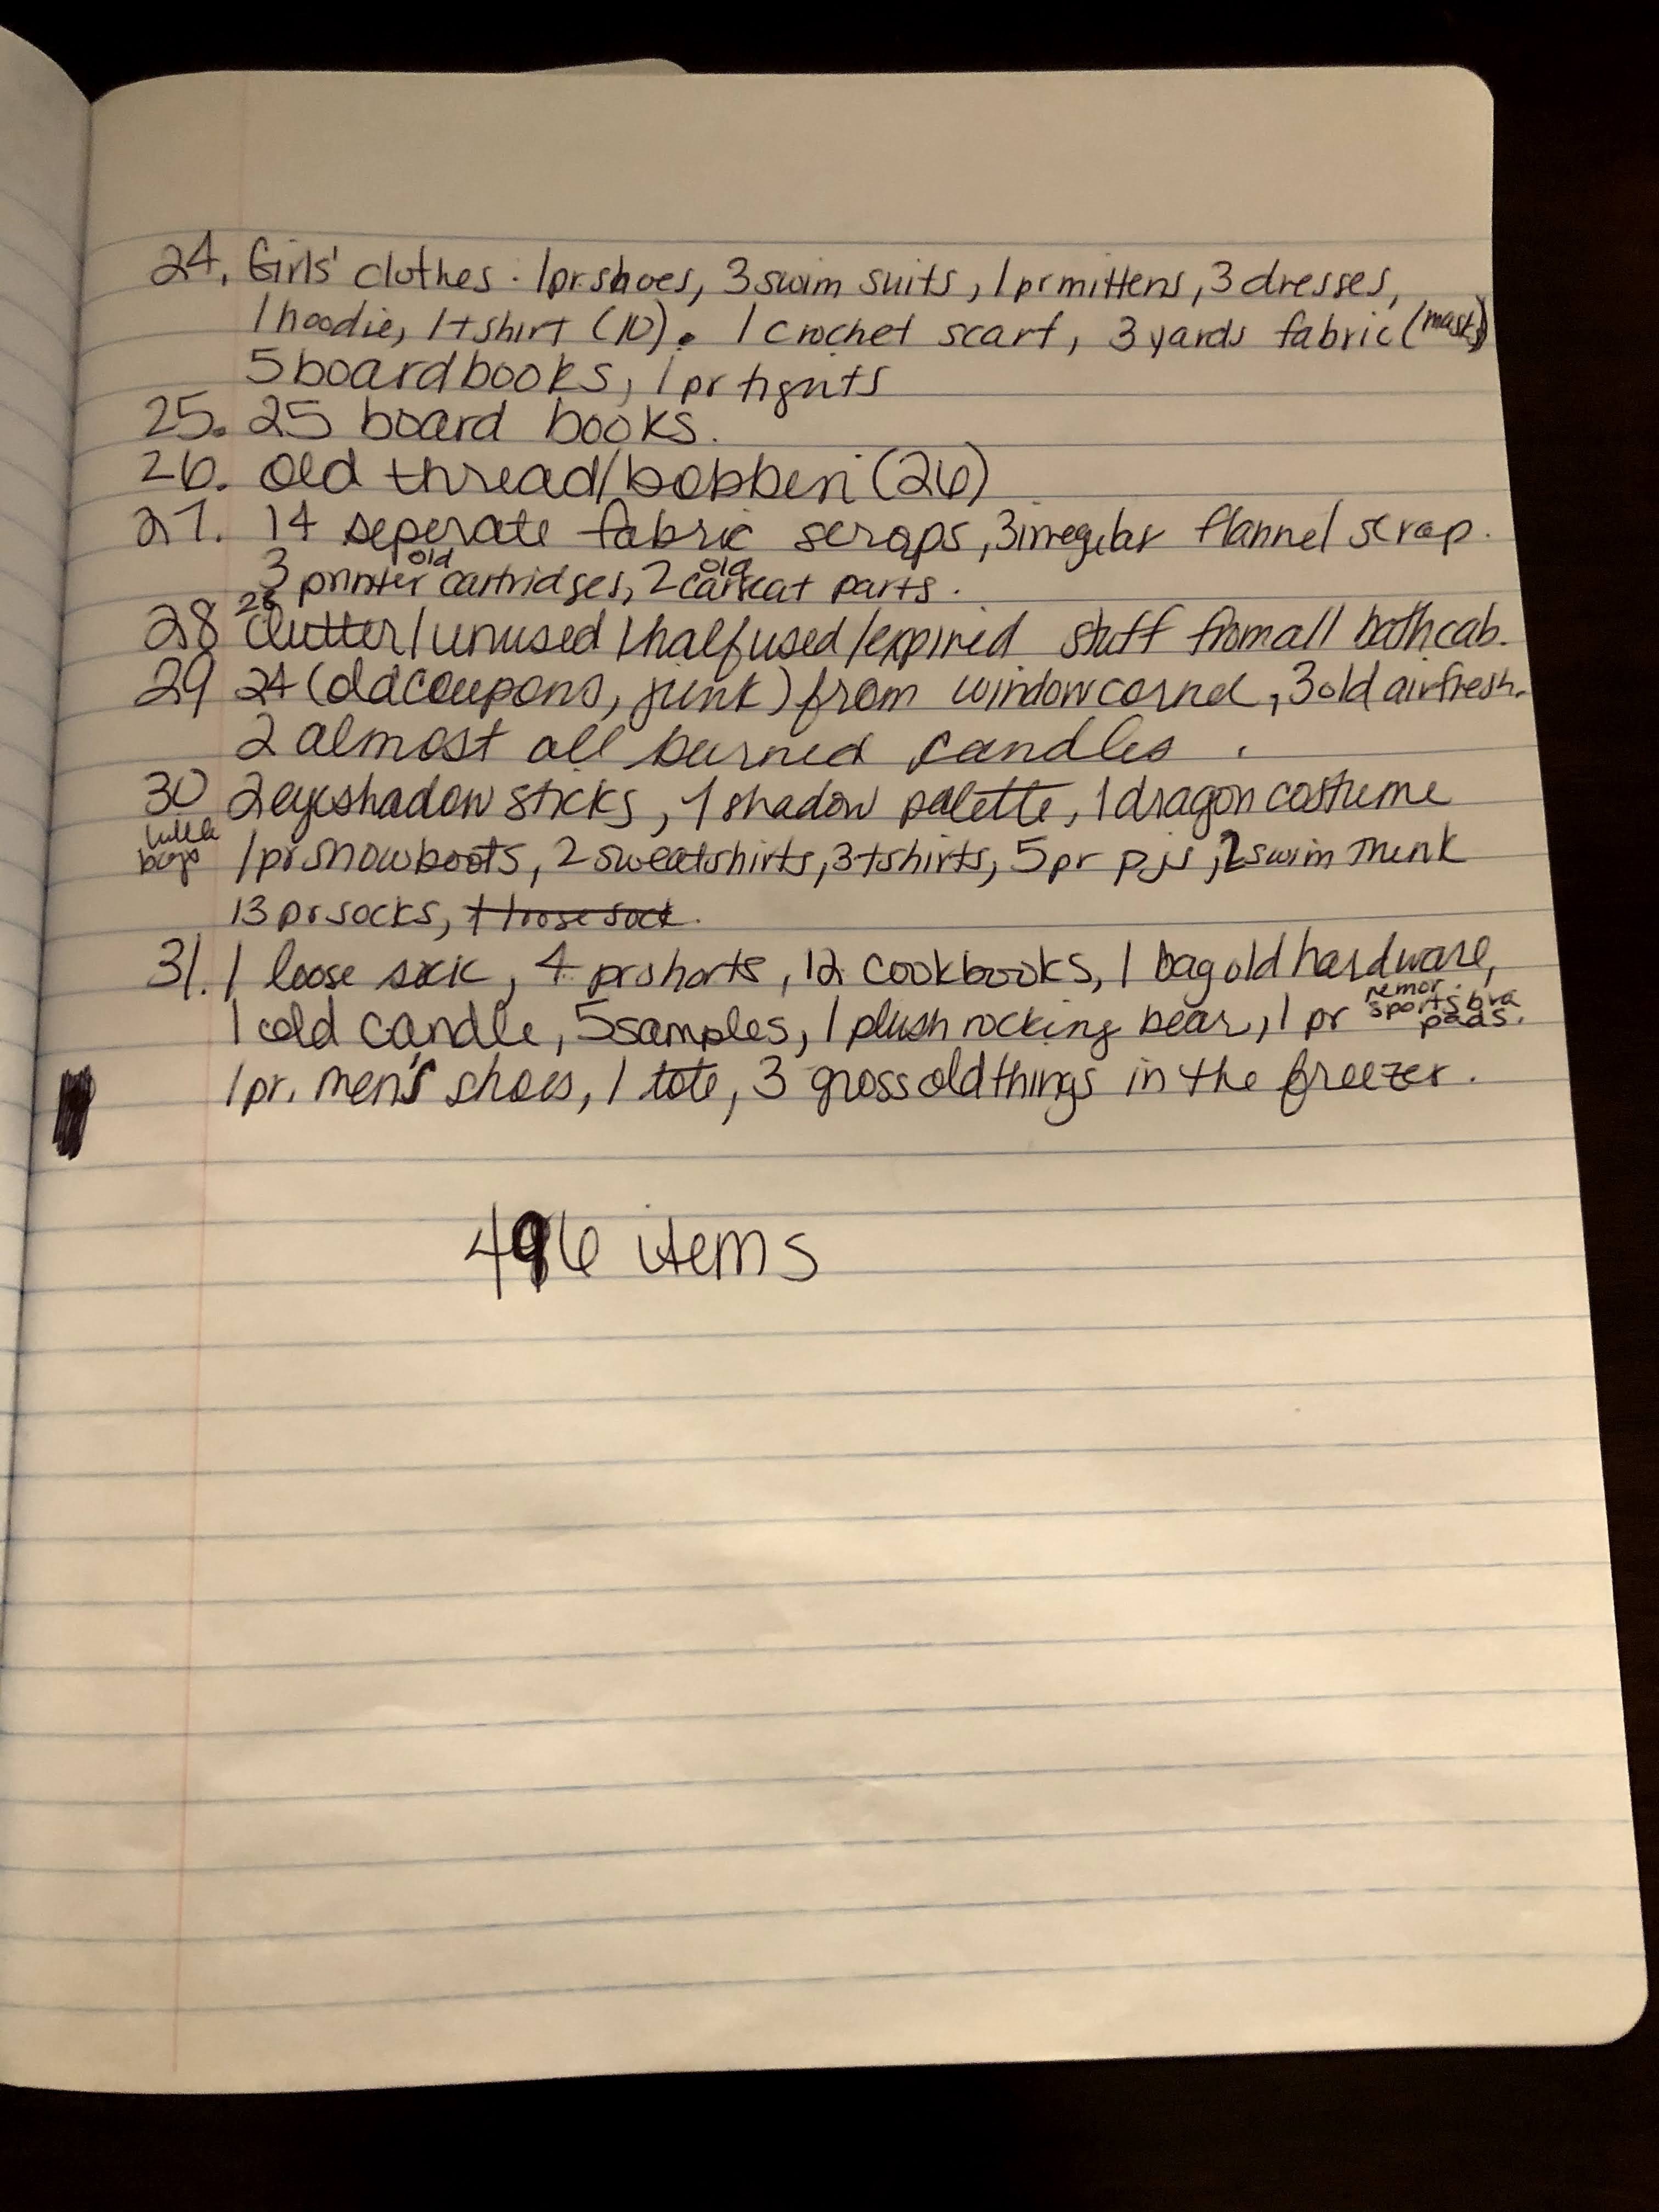 24. Girls' clothes. 1pr. shoes, 3 swim suits, 1 pr mittens, 3 dresses,
1 hoodie, 1 tshirt (10). 1 crochet scarf, 3 yards fabric (masks)
5 board books, 1 pr tights
25. 25 board books.
26. old thread/bobben (26)
27. 14 seperate fabric scraps, 3 irregular flannel scrap.
3 printer old cartridses, 2 old carseat parts.
28 28 clutter/unused/half used/expired stuff from all bath cab.
29 24 (old coupons, junk) from window corner, 3 old airfresh.
2 almost all burned candles.
30 2 eyeshadow sticks, 1 shadow palette, 1 dragon costume
boys 1 pr snowboots, 2 sweatshirts, 3 tshirts, 5 pr pjs, 2 swim trunk
13 pr socks, 1 loose sock.
31. 1 loose sock, 4 pr shorts, 12 cookbooks, 1 bag old hardware,
1 old candle, 5 samples, 1 plush rocking bear, 1 pr remov. sports bra pads.
1 pr. men's shoes, 1 tote, 3 gross old things in the freezer.
496 items